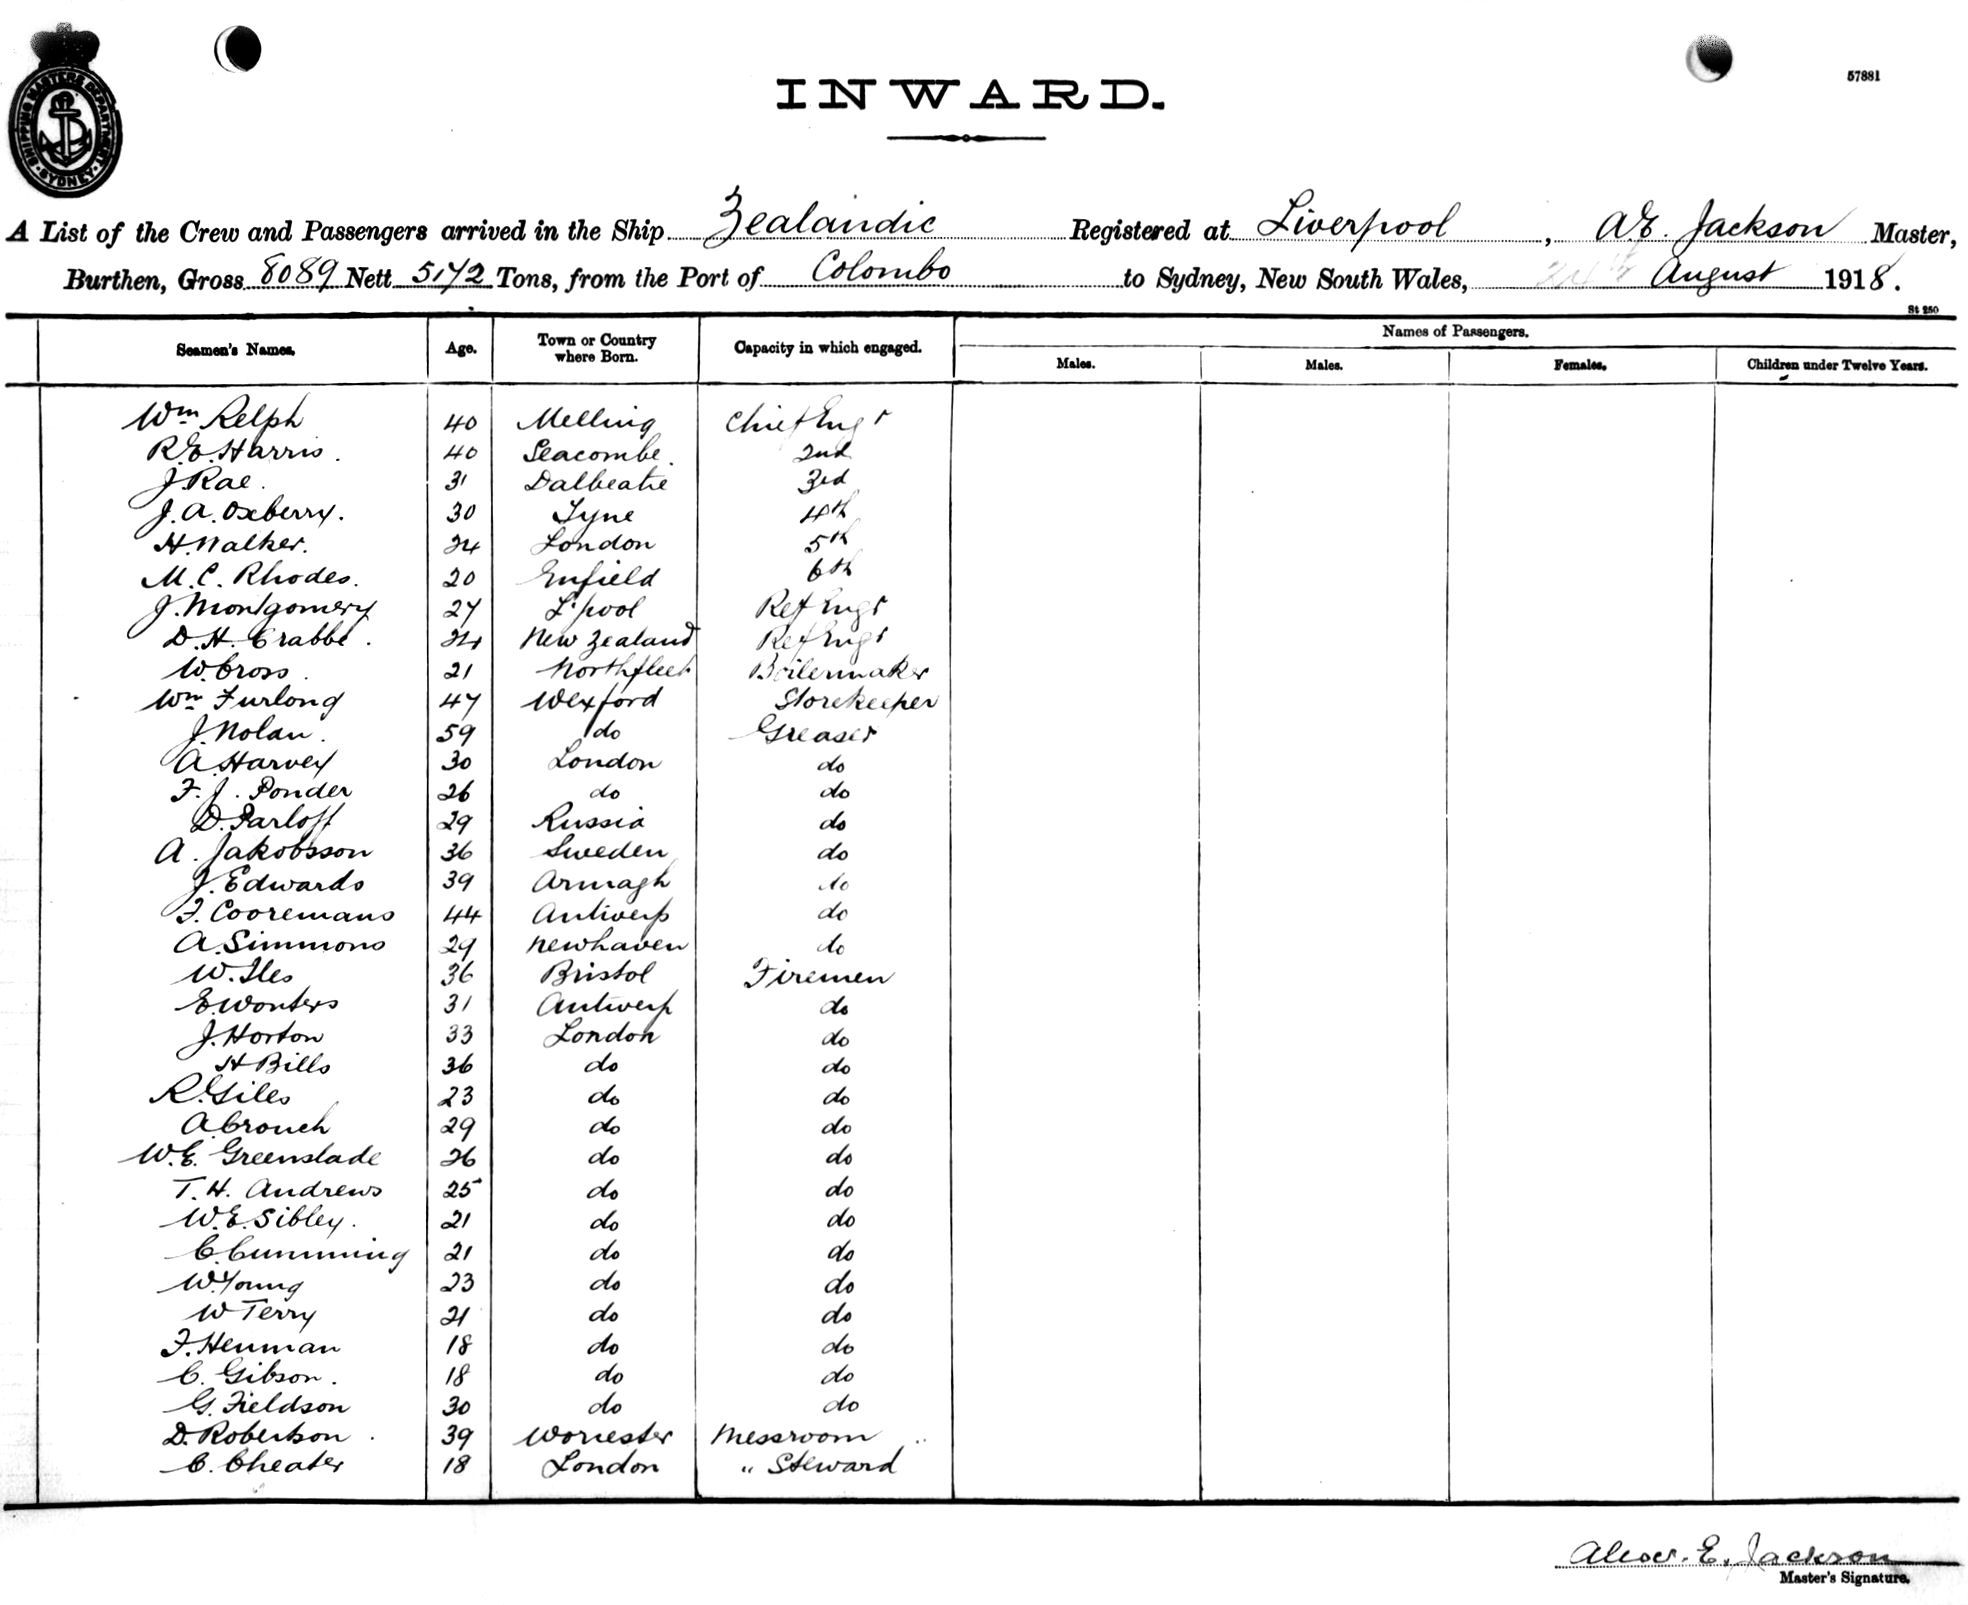 SHIPPING MASTERS DEPARTMENT · SYDNEY ·
57881
INWARD.
A List of the Crew and Passengers arrived in the Ship Zealandic Registered at Liverpool, A.E. Jackson Master,
Burthen, Gross 8089 Nett 5172 Tons, from the Port of Colombo to Sydney, New South Wales, August 1918.
St 250
Seamen's Names. Age. Town or Country where Born. Capacity in which engaged. Names of Passengers.
Males. Males. Females. Children under Twelve Years.
Wm Relph 40 Melling Chief Engr
R.E. Harris. 40 Seacombe. 2nd
J. Rae. 31 Dalbeatie 3rd
J.A. Oxberry. 30 Tyne 4th
H. Walker. 24 London 5th
M.C. Rhodes. 20 Enfield 6th
J. Montgomery 27 L'pool Ref Engr
D.H. Crabbe. 24 New Zealand Ref Engr
W. Cross. 21 Northfleet Boilermaker
Wm Furlong 47 Wexford Storekeeper
J. Nolan. 59 do Greaser
A. Harvey 30 London do
F.J. Ponder 26 do do
D. Parloff 29 Russia do
A. Jakobsson 36 Sweden do
J. Edwards 39 Armagh do
F. Cooremans 44 Antwerp do
A. Simmons 29 Newhaven do
W. Iles 36 Bristol Firemen
E. Wonters 31 Antwerp do
J. Horton 33 London do
H Bills 36 do do
R. Giles 23 do do
A. Crouch 29 do do
W.E. Greenslade 26 do do
T.H. Andrews 25 do do
W.E. Sibley. 21 do do
C. Cumming 21 do do
W. Young 23 do do
W Terry 21 do do
F. Henman 18 do do
C. Gibson. 18 do do
G. Fieldson 30 do do
D. Robertson. 39 Worcester Messroom "
C. Cheater 18 London " Steward
Alexr. E. Jackson
Master's Signature.